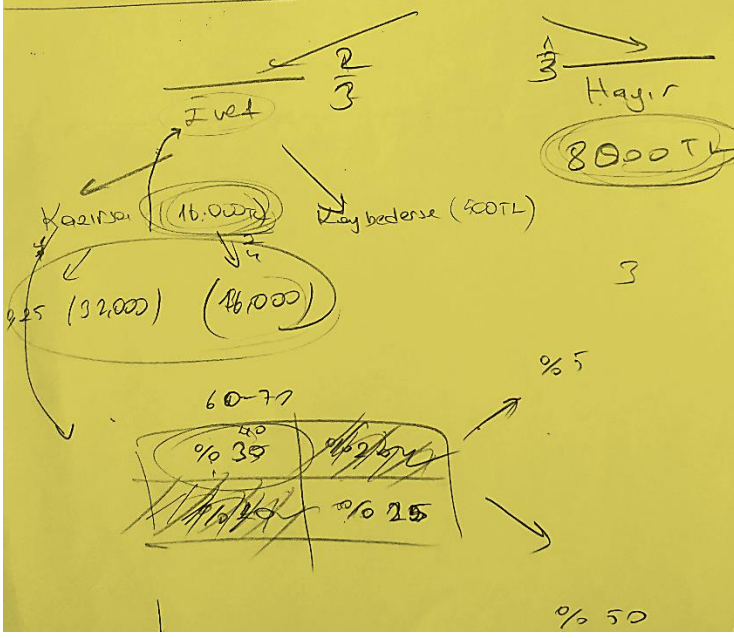 2/3
1/3
Evet
Hayır
8000 TL
Kazırsa (16.000TL) Kaybederse (500TL)
2/4
0,25 (32,000) (16,000)
3
% 5
60-70
40
% 35
% 25
% 50